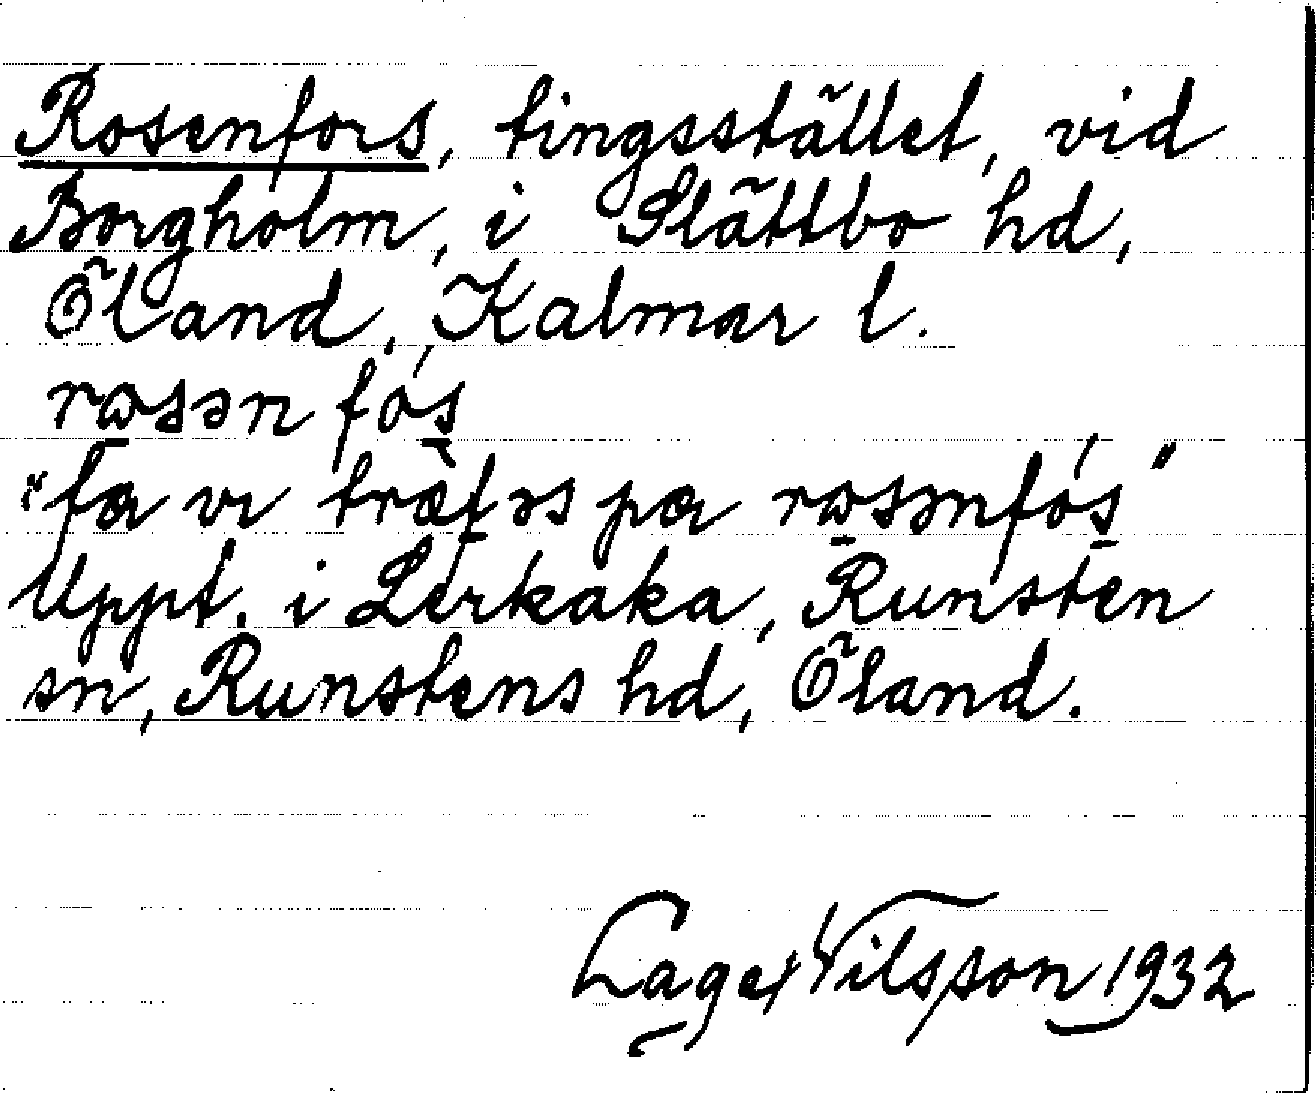 Rosenfors, tingsstället, vid
Borgholm, i Slättbo hd,
Öland, Kalmar l.
rɷsən fós̱
"ta vɩ træ̀f əs pa rɷsənfós̱"
Uppt. i Lerkaka, Runsten
sn, Runstens hd, Öland.
Lage Nilsson 1932